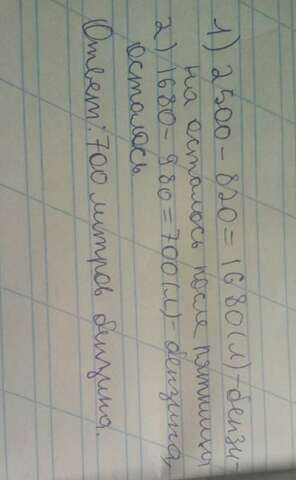 1) 2500-820=1680(л)-бензи-
на осталось после пятницы
2) 1680-980=700(л)-бензина,
осталось
Ответ: 700 литров бензина.